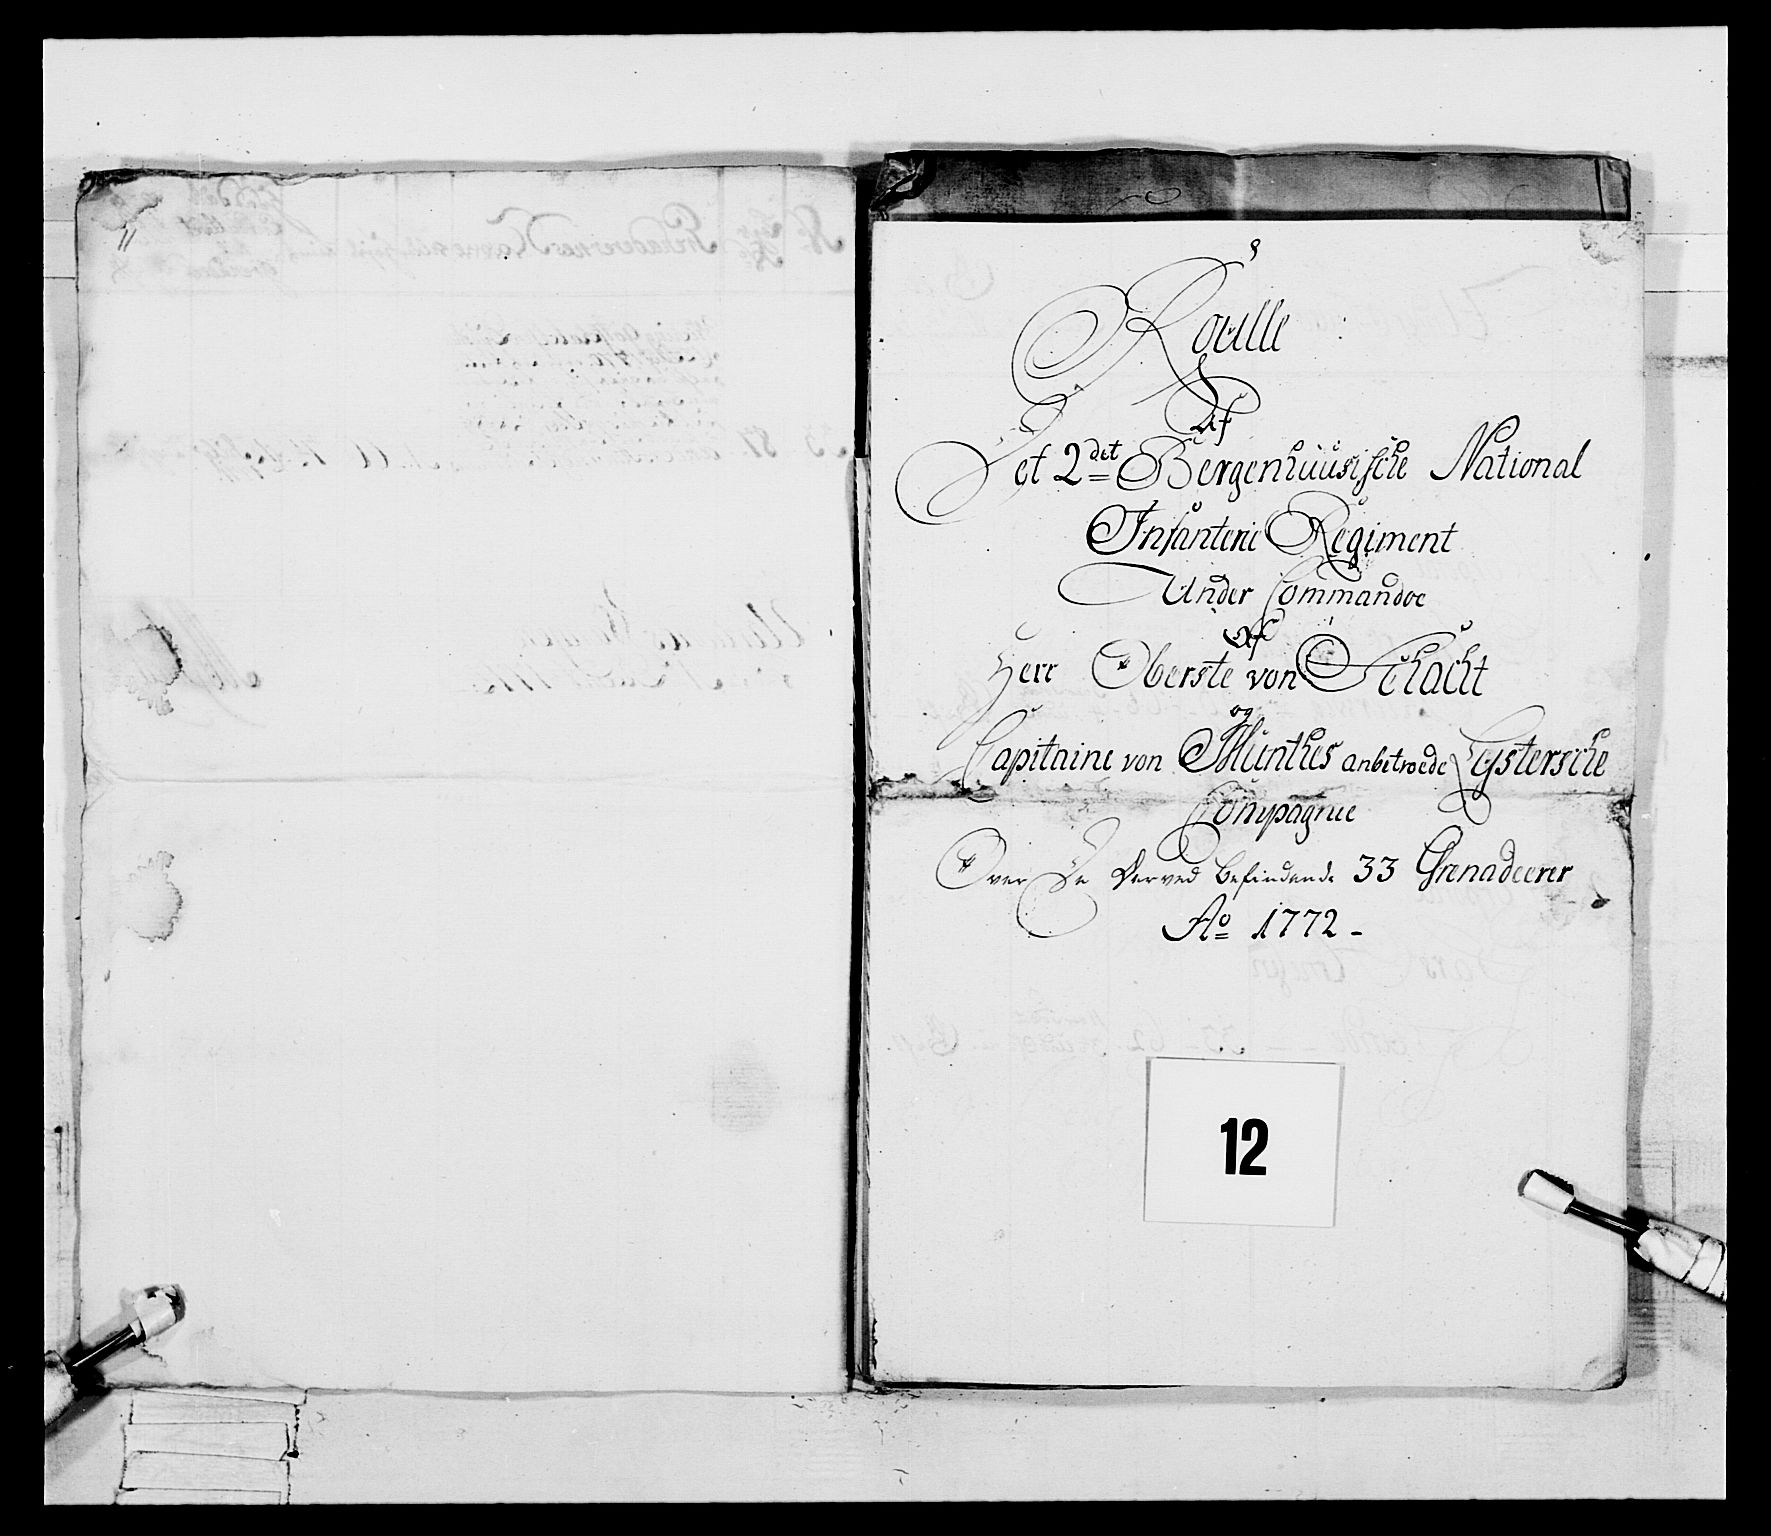 Roulle
Af
Det 2det Bergenhuusische National
Infanterie Regiment
Under Commandoe
Af
Herr Oberste von Schacht
og
Capitaine von Munthes anbetroede Lystersche
Compagnie
Over De Derved befindende 33 Grenadeerer
Ao 1772
12